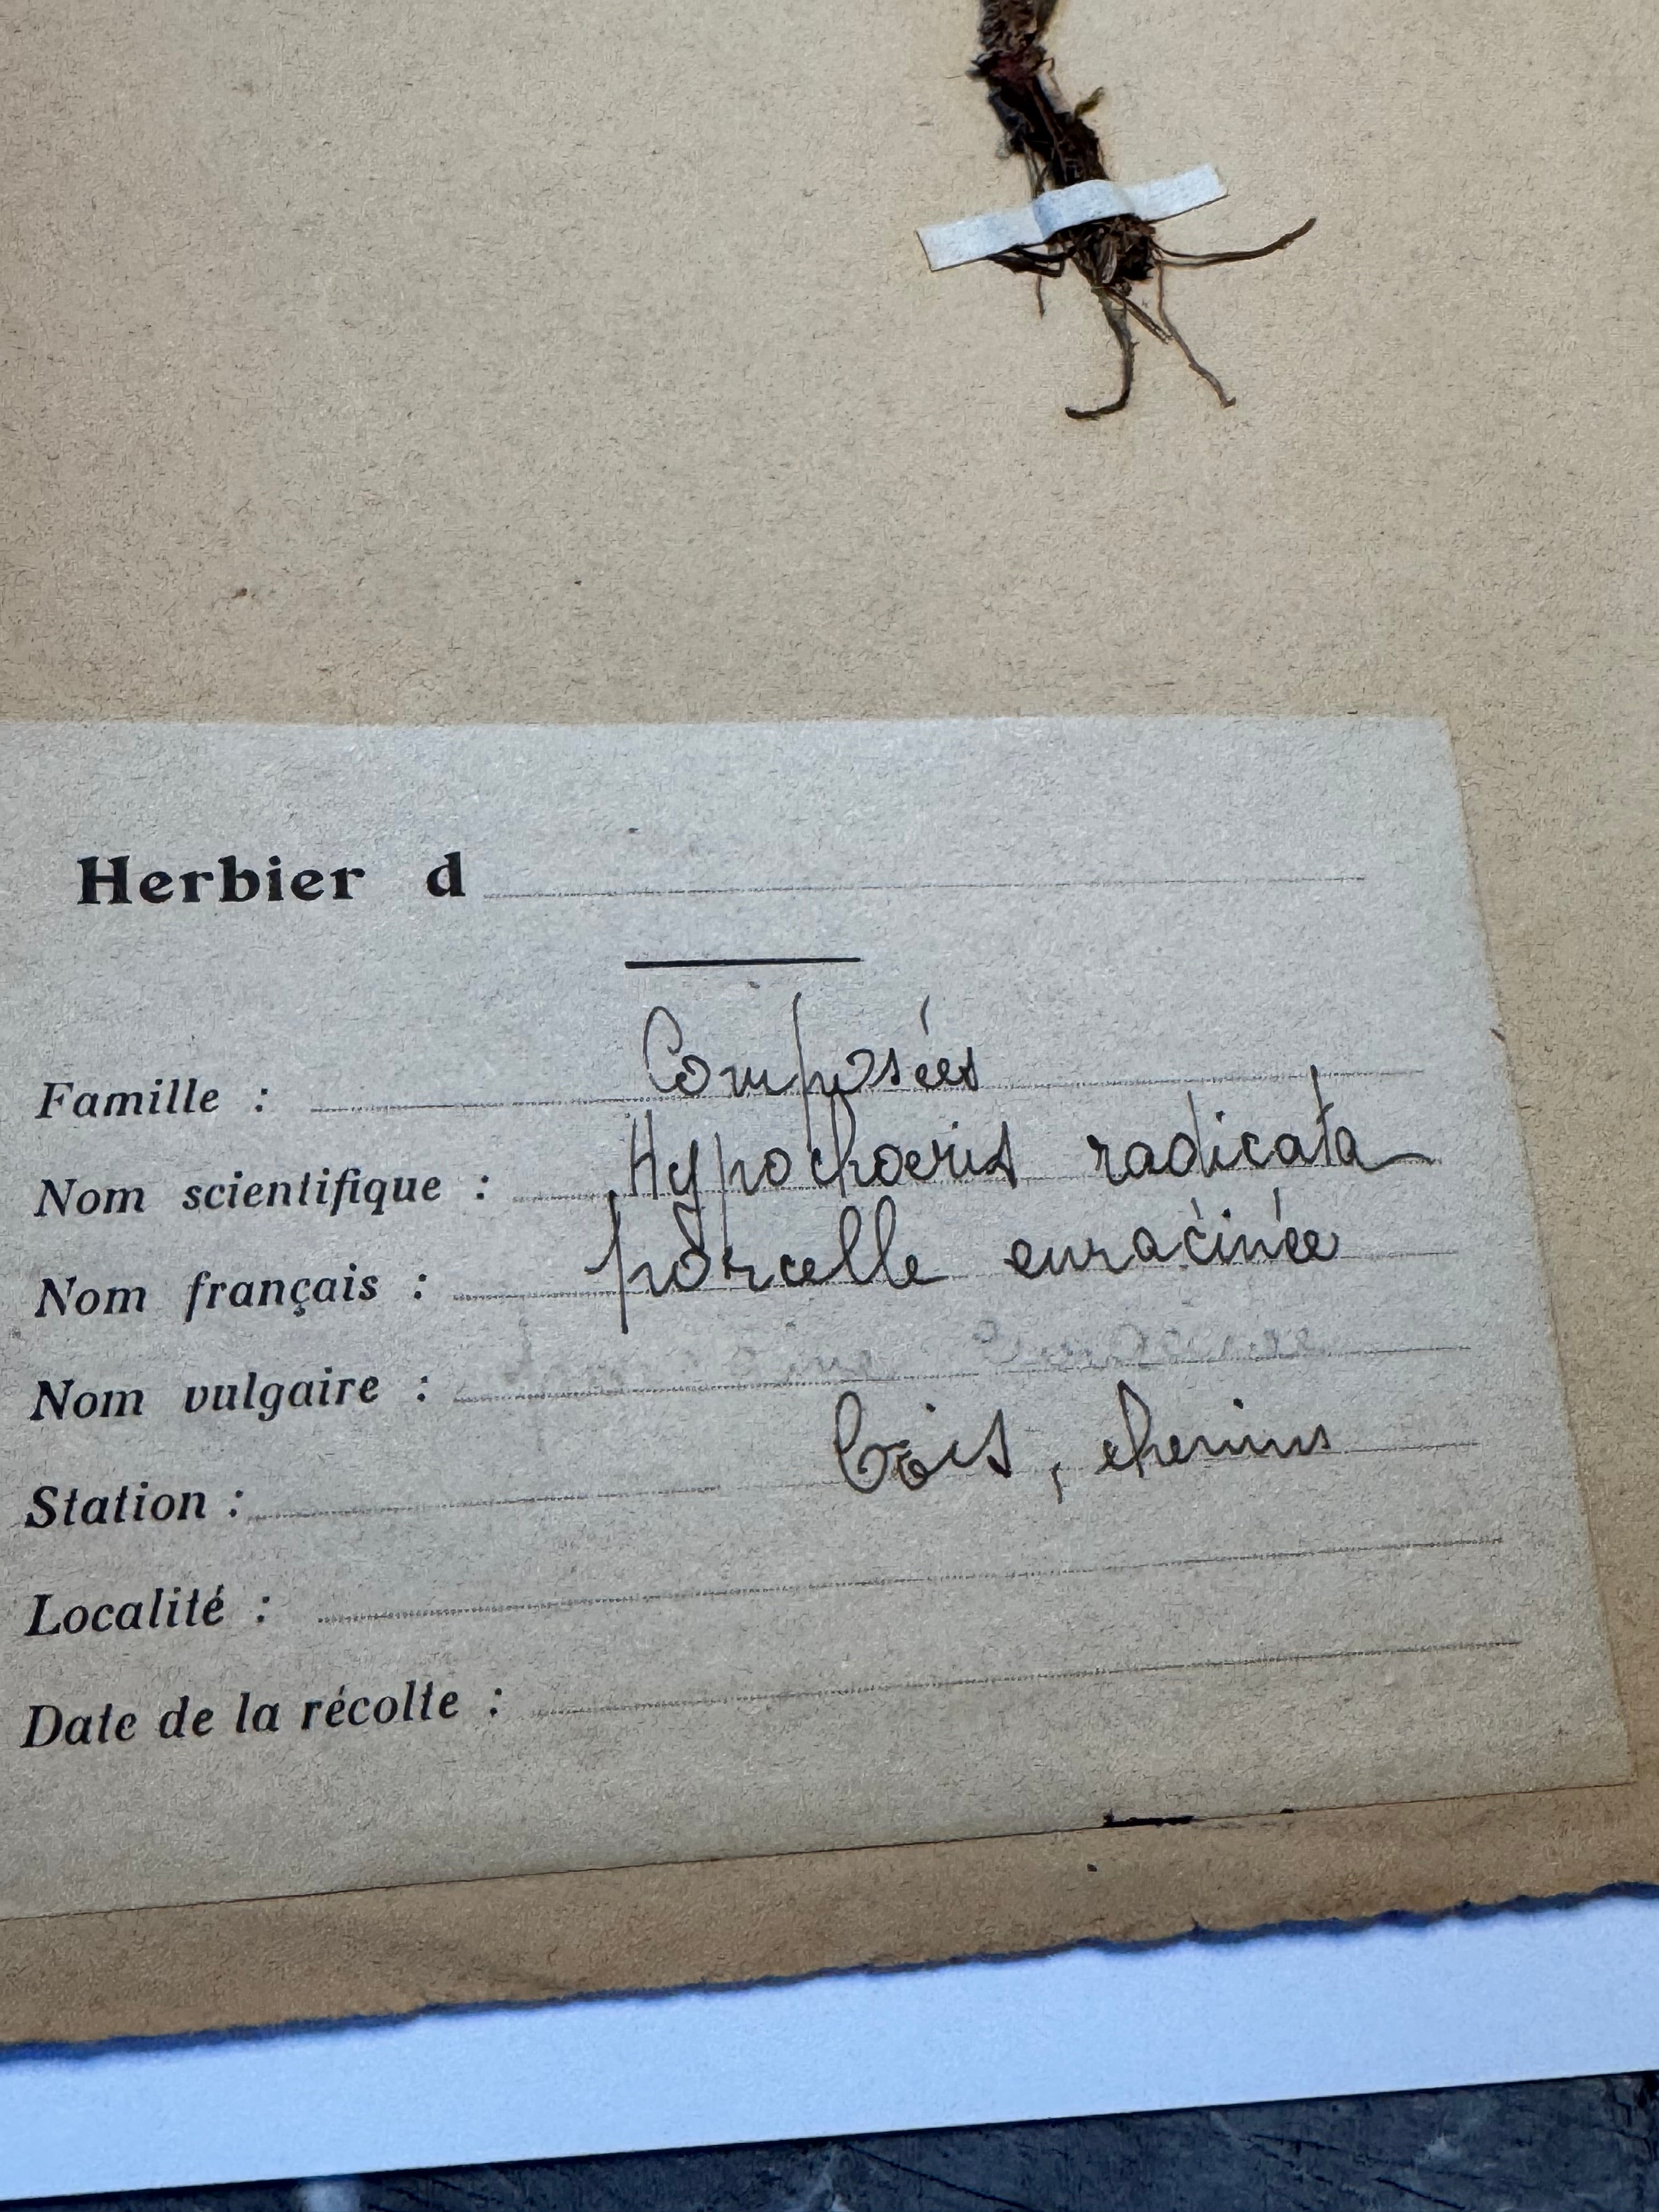 Herbier d
Famille : Composées
Nom scientifique : Hypochoeris radicata
Nom français : porcelle enracinée
Nom vulgaire :
Station : bois, chemins
Localité :
Date de la récolte :